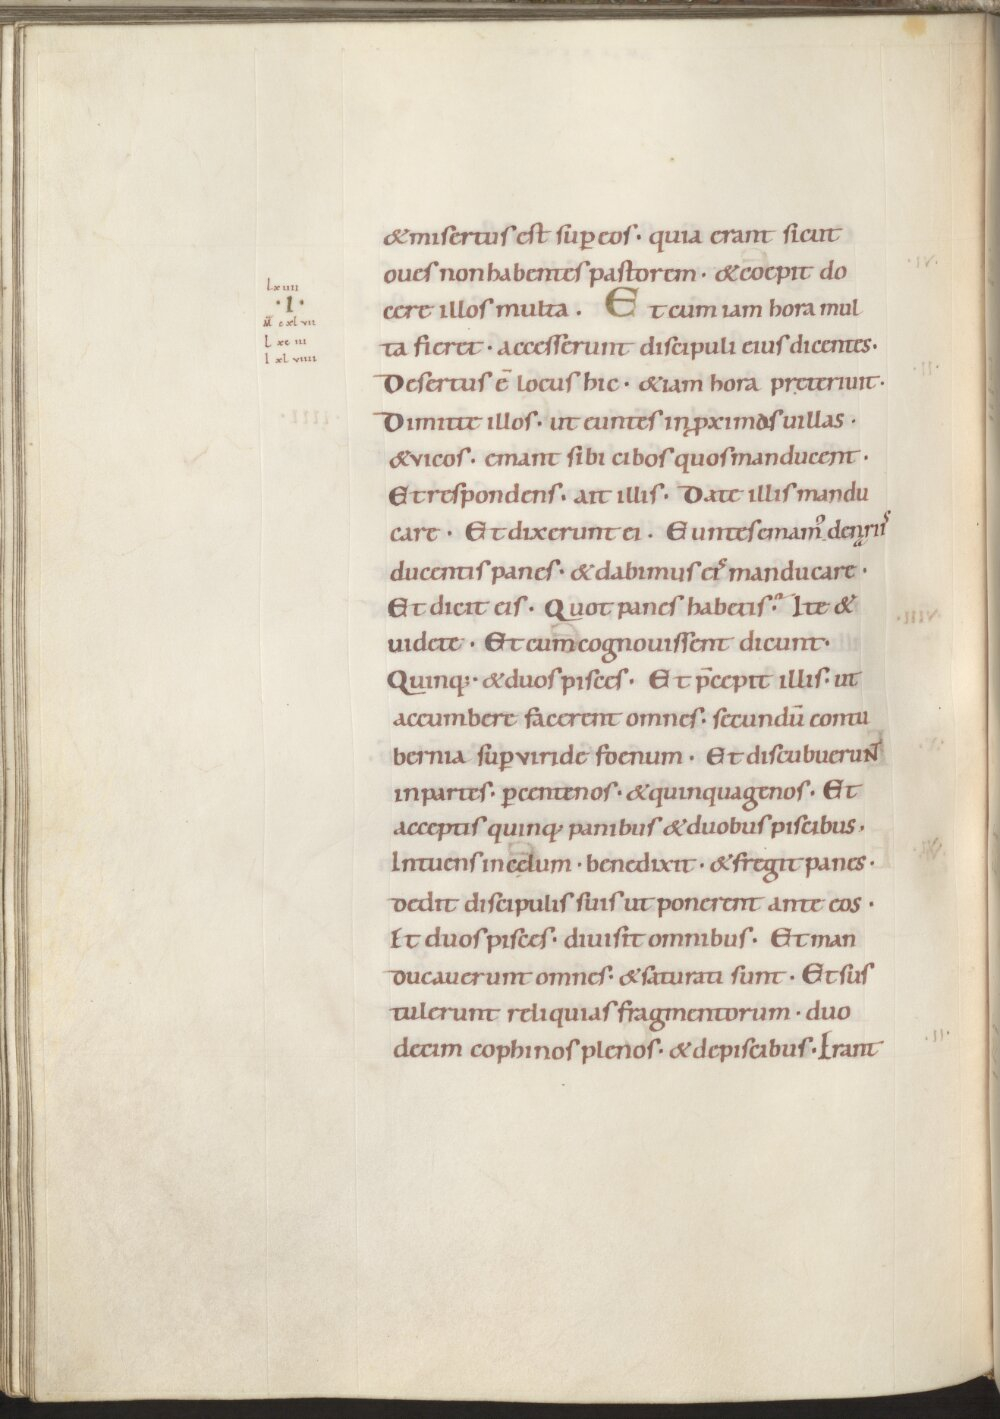 lxiiii
·I·
M̄ cxlvii
L xciii
I xlviiii
&misertus est sup̱ eos· quia erant sicut
oues non habentes pastorem· &coepit do
cere illos multa· Et cum iam hora mul
ta fieret· accesserunt discipuli eius dicentes·
Desertus ē locus hic· &iam hora pręteriuit·
Dimitte illos· ut euntes in ꝓximas uillas·
&vicos· emant sibi cibos quos manducent·
Et respondens· ait illis· Date illis mandu
care· Et dixerunt ei· Euntes emam᾽ denariis
ducentis panes· &dabimus eis manducare·
Et dicit eis· Quot panes habetis? Ite &
uidete· Et cum cognouissent dicunt·
Quinq;· &duos pisces· Et p̄cepit illis· ut
accumbere facerent omnes· secundū contu
bernia sup̱ viride foenum· Et discubuerun̄
in partes· p̱ centenos· &quinquagenos· Et
acceptis quinq; panibus &duobus piscibus,
Intuens in cęlum· benedixit· &fregit panes·
dedit discipulis suis ut ponerent ante eos·
Et duos pisces· diuisit omnibus· Et man
ducauerunt omnes· &saturati sunt· Et sus
tulerunt reliquias fragmentorum· duo
decim cophinos plenos· &de piscibus· Erant